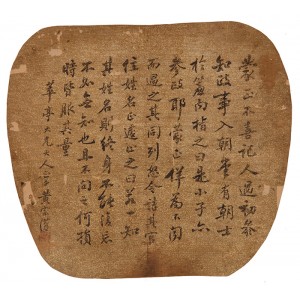 蒙正不喜記人過初參
知政事入朝堂有朝士
於簾內指之曰是小子亦
參政耶蒙正佯為不聞
而過之其同列怒令詰其官
位姓名蒙正遽止之曰若一知
其姓名則終身不能復忘
不如無知也且不問之何損
時皆服其量
華亭大兄大人